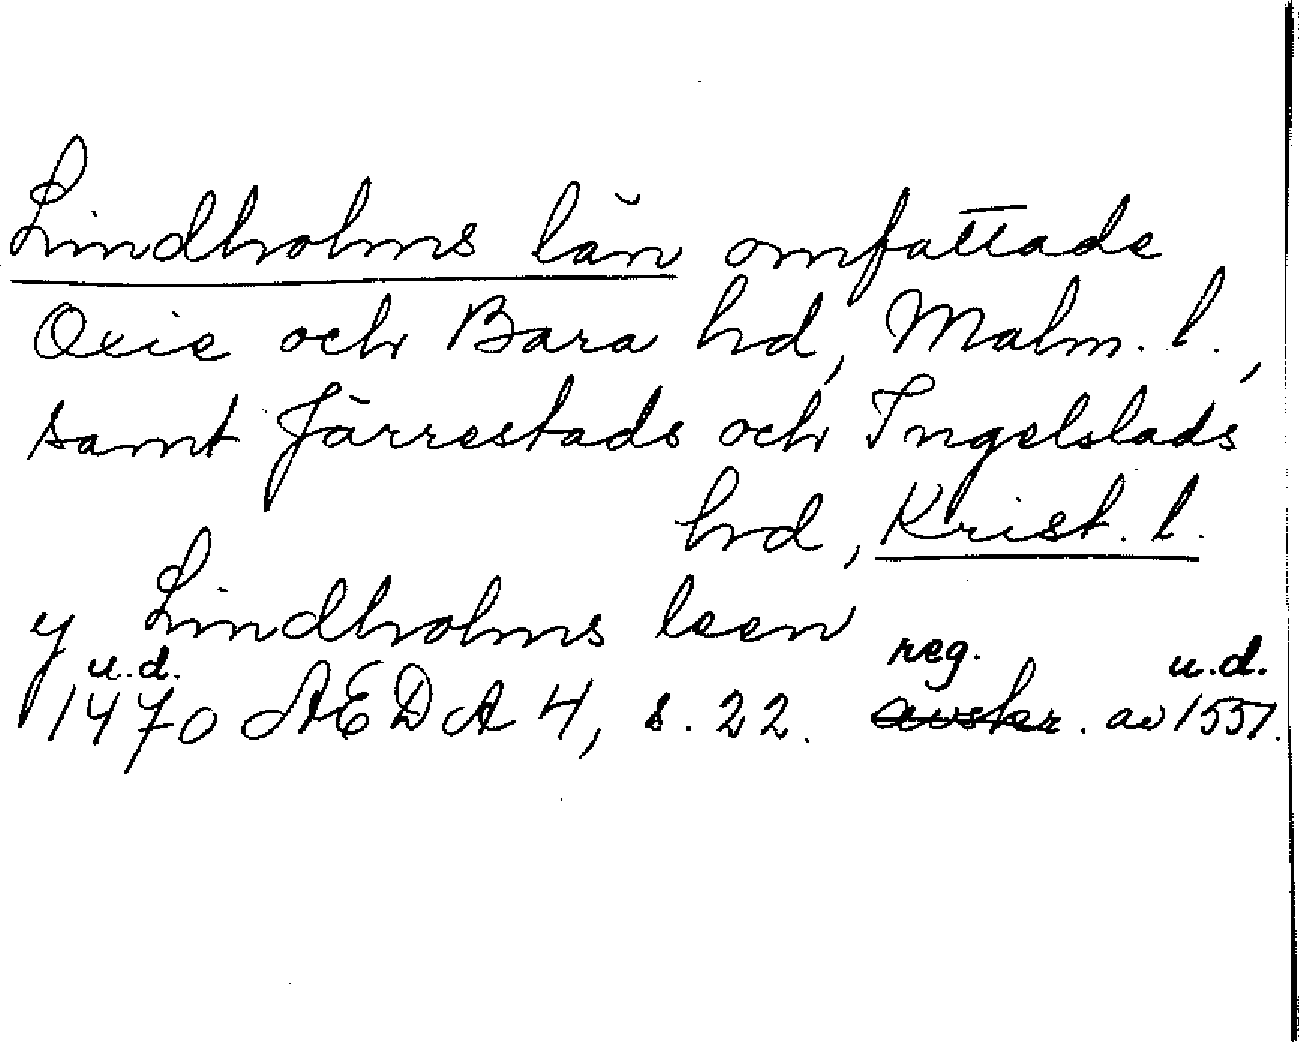 Lindholms län omfattade
Oxie och Bara hd, Malm. l.,
samt Järrestads och Ingelstads
hd, Krist. l.
y Lindholms leen
u.d. reg. u.d.
1470 ÆDA 4, s. 22. avskr. av 1551.